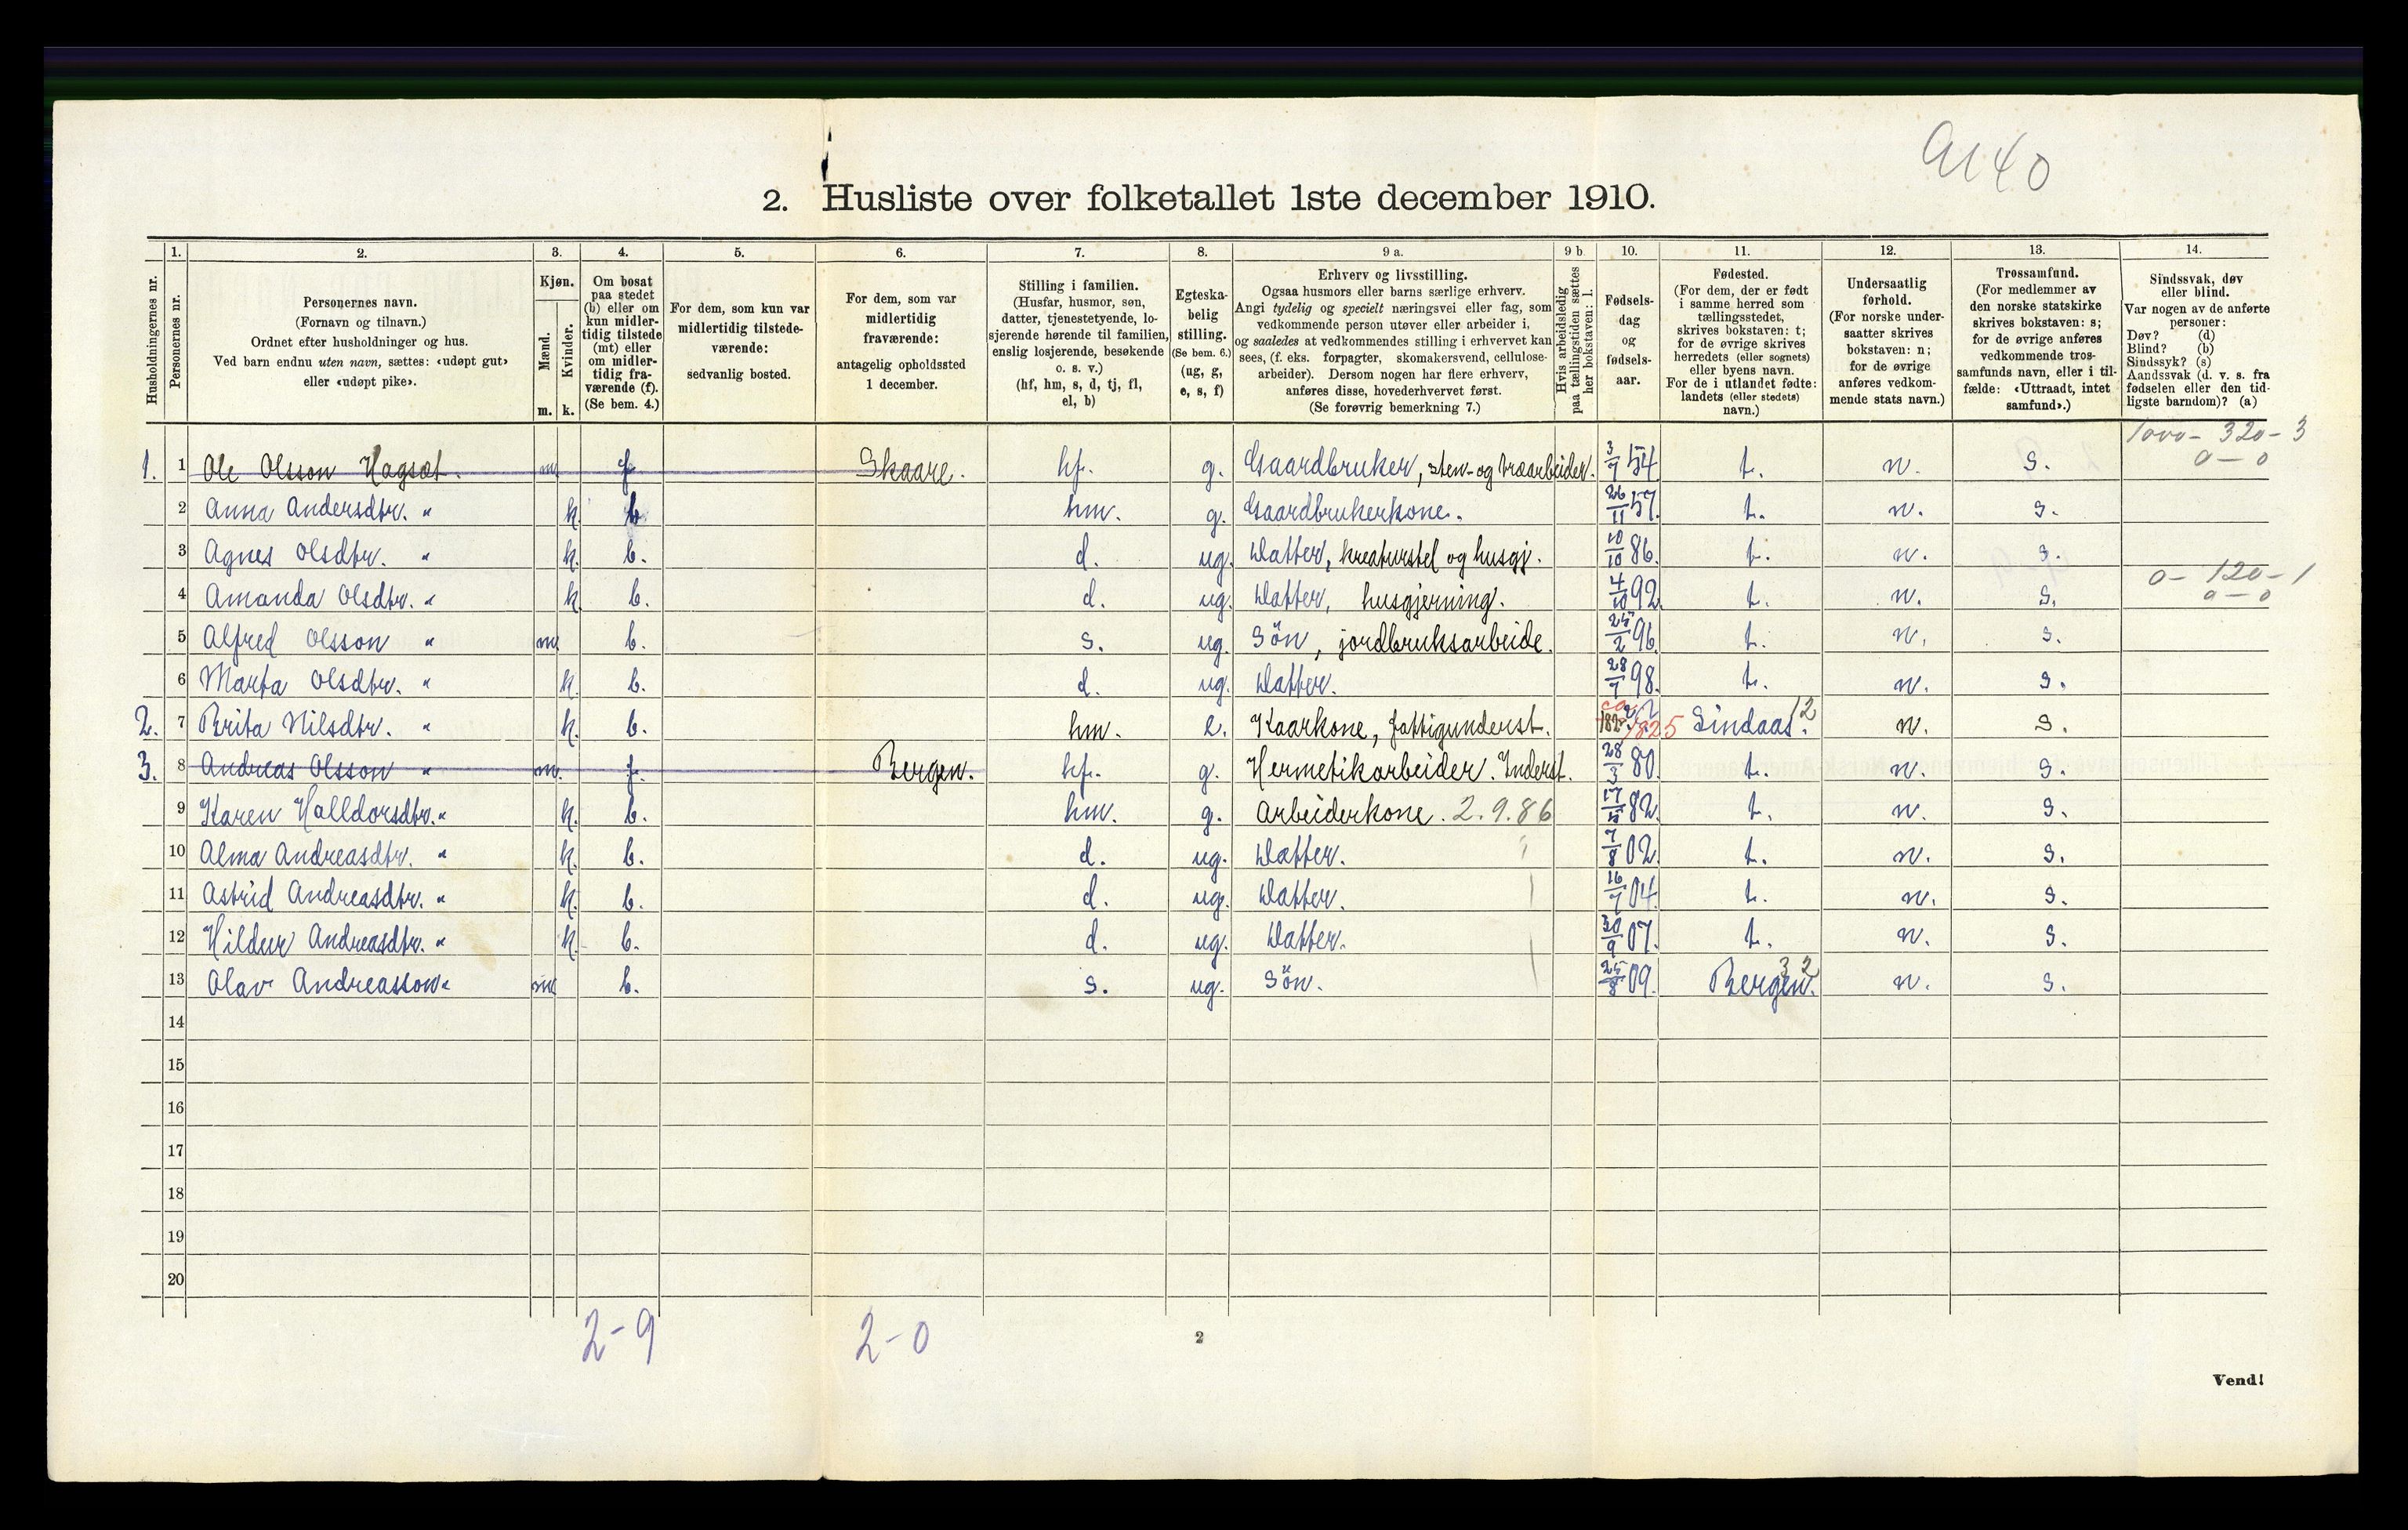 a140
2. Husliste over folketallet 1ste december 1910.
Husholdningernes nr.
1.
Personernes nr.
2.
Personernes navn.
(Fornavn og tilnavn.)
Ordnet efter husholdninger og hus.
Ved barn endnu uten navn, sættes: «udøpt gut»
eller «udøpt pike».
3.
Kjøn.
Mænd.
m.
Kvinder.
k.
4.
Om bosat
paa stedet
(b) eller om
kun midler-
tidig tilstede
(mt) eller
om midler-
tidig fra-
værende (f).
(Se bem. 4.)
5.
For dem, som kun var
midlertidig tilstede-
værende:
sedvanlig bosted.
6.
For dem, som var
midlertidig
fraværende:
antagelig opholdssted
1 december.
7.
Stilling i familien.
(Husfar, husmor, søn,
datter, tjenestetyende, lo-
sjerende hørende til familien,
enslig losjerende, besøkende
o. s. v.)
(hf, hm, s, d, tj, fl,
el, b)
8.
Egteska-
belig
stilling.
(Se bem. 6.)
(ug, g,
e, s, f)
9 a.
Erhverv og livsstilling.
Ogsaa husmors eller barns særlige erhverv.
Angi tydelig og specielt næringsvei eller fag, som
vedkommende person utøver eller arbeider i,
og saaledes at vedkommendes stilling i erhvervet kan
sees, (f. eks. forpagter, skomakersvend, cellulose-
arbeider). Dersom nogen har flere erhverv,
anføres disse, hovederhvervet først.
(Se forøvrig bemerkning 7.)
9 b.
Hvis arbeidsledig
paa tællingstiden sættes
her bokstaven: l.
10.
Fødsels-
dag
og
fødsels-
aar.
11.
Fødested.
(For dem, der er født
i samme herred som
tællingsstedet,
skrives bokstaven: t;
for de øvrige skrives
herredets (eller sognets)
eller byens navn.
For de i utlandet fødte:
landets (eller stedets)
navn.)
12.
Undersaatlig
forhold.
(For norske under-
saatter skrives
bokstaven: n;
for de øvrige
anføres vedkom-
mende stats navn.)
13.
Trossamfund.
(For medlemmer av
den norske statskirke
skrives bokstaven: s;
for de øvrige anføres
vedkommende tros-
samfunds navn, eller i til-
fælde: «Uttraadt, intet
samfund».)
14.
Sindssvak, døv
eller blind.
Var nogen av de anførte
personer:
Døv? (d)
Blind? (b)
Sindssyk? (s)
Aandssvak (d. v. s. fra
fødselen eller den tid-
ligste barndom)? (a)
1. 1 Ole Olsson Hagsæt. m. f. Skaare. hf. g. Gaardbruker, sten- og træarbeider. 3/7 54 t. n. s. 1000 - 320 - 3
0 - 0
2 Anna Andersdtr. " k. b. hm. g. Gaardbrukerkone. 26/11 57. t. n. s.
3 Agnes Olsdtr. " k. b. d. ug. Datter, kreaturstel og husgj. 10/10 86. t. n. s.
4 Amanda Olsdtr. " k. b. d. ug. Datter, husgjerning. 4/10 92. t. n. s. 0 - 120 - 1
0 - 0
5 Alfred Olsson " m. b. s. ug. Sön, jordbruksarbeide. 25/2 96. t. n. s.
6 Marta Olsdtr. " k. b. d. ug. Datter. 28/7 98. t. n. s.
2. 7 Brita Nilsdtr. " k. b. hm. e. Kaarkone, fattigunderst. ca 1825 Lindaas. 12 n. s.
3. 8 Andreas Olsson " m. f. Bergen. hf. g. Hermetikarbeider. Inderst. 28/3 80. t. n. s.
9 Karen Halldorsdtr. " k. b. hm. g. Arbeiderkone. 2.9.86 82. t. n. s.
10 Alma Andreasdtr. " k. b. d. ug. Datter. 7/8 02. t. n. s.
11 Astrid Andreasdtr. " k. b. d. ug. Datter. 16/7 04. t. n. s.
12 Hildur Andreasdtr. " k. b. d. ug. Datter. 30/9 07. t. n. s.
13 Olav Andreasson " m. b. s. ug. Sön. 25/8 09. Bergen. 32 n. s.
14
15
16
17
18
19
20
2-9 2-0
2
Vend!